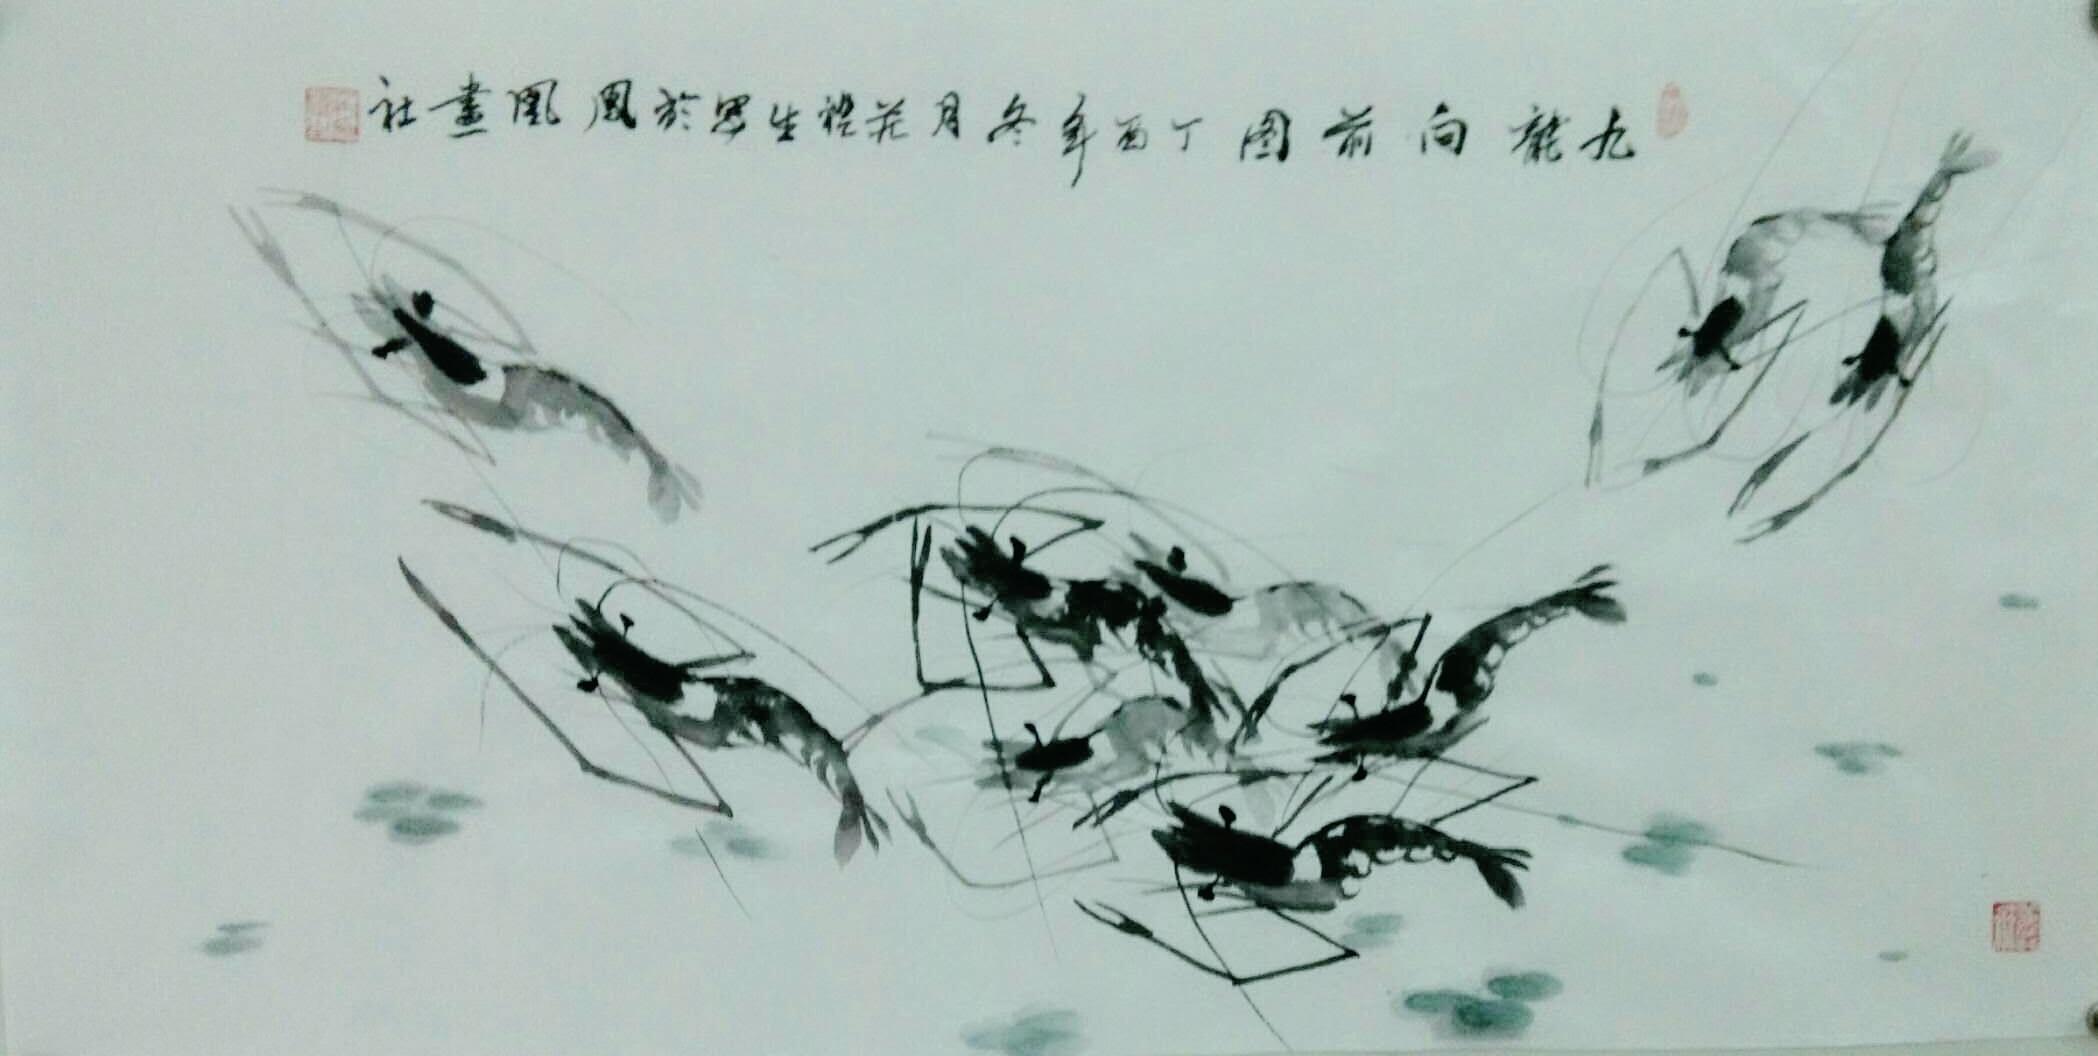 九龍向前图丁酉年冬月花 生 於鳳凰畫社